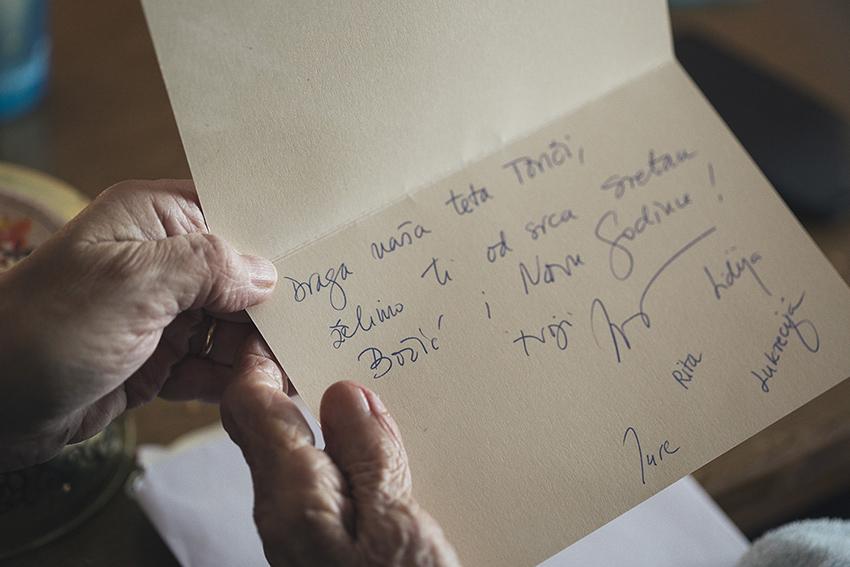 Draga naša teta Tonči,
želimo ti od srca sretan
Božić i Novu Godinu!
tvoji
Lidija
Rita
Lukrecija
Jure